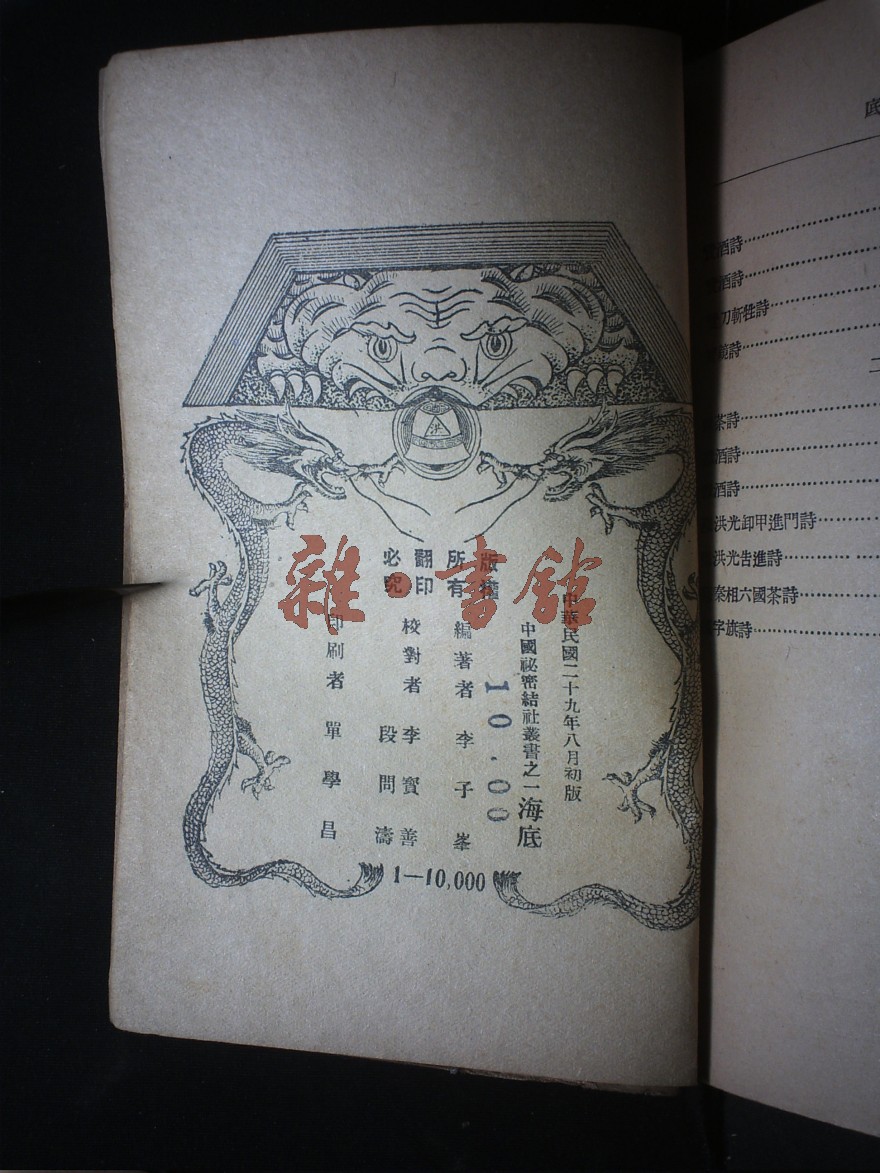 中華民國二十九年八月初版
中國祕密結社叢書之一海底
10.00
編著者 李子峯
校對者 李實善
段問濤
印刷者 單學昌
版權
所有
翻印
必究
1—10,000
雜·書館
底
酒詩
酒詩
刀斬牲詩
詩
二
茶詩
酒詩
酒詩
洪光卸甲進門詩
洪光告進詩
秦相六國茶詩
字旗詩